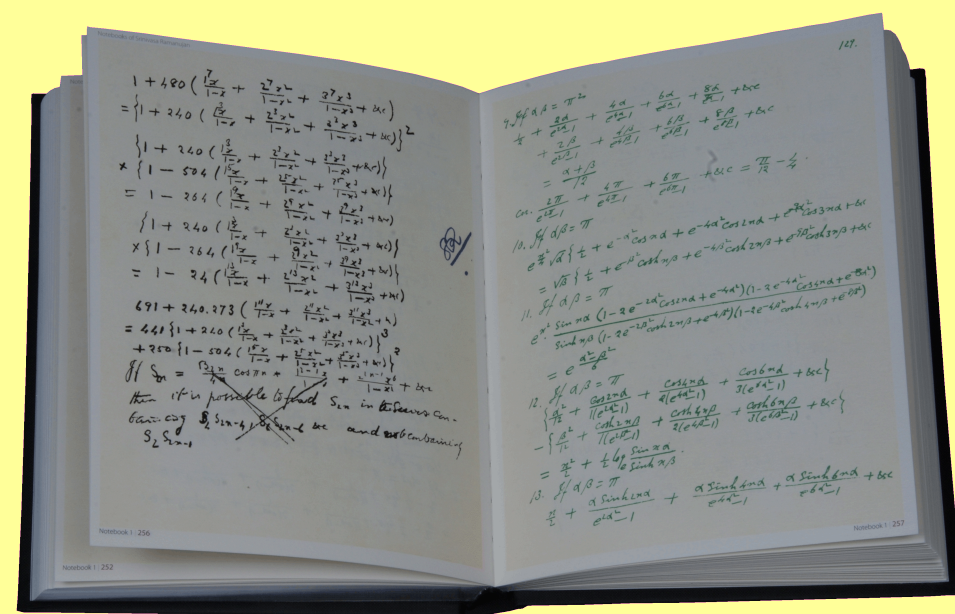 Notebooks of Srinivasa Ramanujan
1 + 480 ( 1⁷x/1−x + 2⁷x²/1−x² + 3⁷x³/1−x³ + &c )
= { 1 + 240 ( 1³x/1−x + 2³x²/1−x² + 3³x³/1−x³ + &c ) }²
{ 1 + 240 ( 1³x/1−x + 2³x²/1−x² + 3³x³/1−x³ + &c ) }
× { 1 − 504 ( 1⁵x/1−x + 2⁵x²/1−x² + 3⁵x³/1−x³ + &c ) }
= 1 − 264 ( 1⁹x/1−x + 2⁹x²/1−x² + 3⁹x³/1−x³ + &c )
{ 1 + 240 ( 1³x/1−x + 2³x²/1−x² + 3³x³/1−x³ + &c ) }
× { 1 − 264 ( 1⁹x/1−x + 2⁹x²/1−x² + 3⁹x³/1−x³ + &c ) }
= 1 − 24 ( 1¹³x/1−x + 2¹³x²/1−x² + 3¹³x³/1−x³ + &c )
691 + 240.273 ( 1¹¹x/1−x + 2¹¹x²/1−x² + 3¹¹x³/1−x³ + &c )
= 441 { 1 + 240 ( 1³x/1−x + 2³x²/1−x² + 3³x³/1−x³ + &c ) }³
+ 250 { 1 − 504 ( 1⁵x/1−x + 2⁵x²/1−x² + 3⁵x³/1−x³ + &c ) }²
If = cos πn + + &c
then it is possible to find S₂ₙ in
and not containing
S₂ S₂ₙ₋₁
Notebook 1 : 256
Notebook 1 : 252
129.
9. If αβ = π²
½ + 2α/e^2α−1 + 4α/e^4α−1 + 6α/e^6α−1 + 8α/e^8α−1 + &c
+ 2β/e^2β−1 + 4β/e^4β−1 + 6β/e^6β−1 + 8β/e^8β−1 + &c
= α+β/12
cor. 2π/e^2π−1 + 4π/e^4π−1 + 6π/e^6π−1 + &c = π/12 − ¼
10. If αβ = π
e^n²/4 √α { ½ + e^−α² cos nα + e^−4α² cos 2nα + e^−9α² cos 3nα + &c
= √β { ½ + e^−β² cosh nβ + e^−4β² cosh 2nβ + e^−9β² cosh 3nβ + &c
11. If αβ = π
e^n² sin nα (1−2e^−2α² cos 2nα + e^−4α²)(1−2e^−4α² cos 4nα + e^−8α²) / sinh nβ (1−2e^−2β² cosh 2nβ + e^−4β²)(1−2e^−4β² cosh 4nβ + e^−8β²)
= e^α²−β²/6
12. If αβ = π
{ α²/12 + cos 2nα/1(e^2α²−1) + cos 4nα/2(e^4α²−1) + cos 6nα/3(e^6α²−1) + &c }
− { β²/12 + cosh 2nβ/1(e^2β²−1) + cosh 4nβ/2(e^4β²−1) + cosh 6nβ/3(e^6β²−1) + &c }
= n²/2 + ½ log sin nα/sinh nβ.
13. If αβ = π
n/2 + α sinh 2nα/e^2α²−1 + α sinh 4nα/e^4α²−1 + α sinh 6nα/e^6α²−1 + &c
Notebook 1 : 257